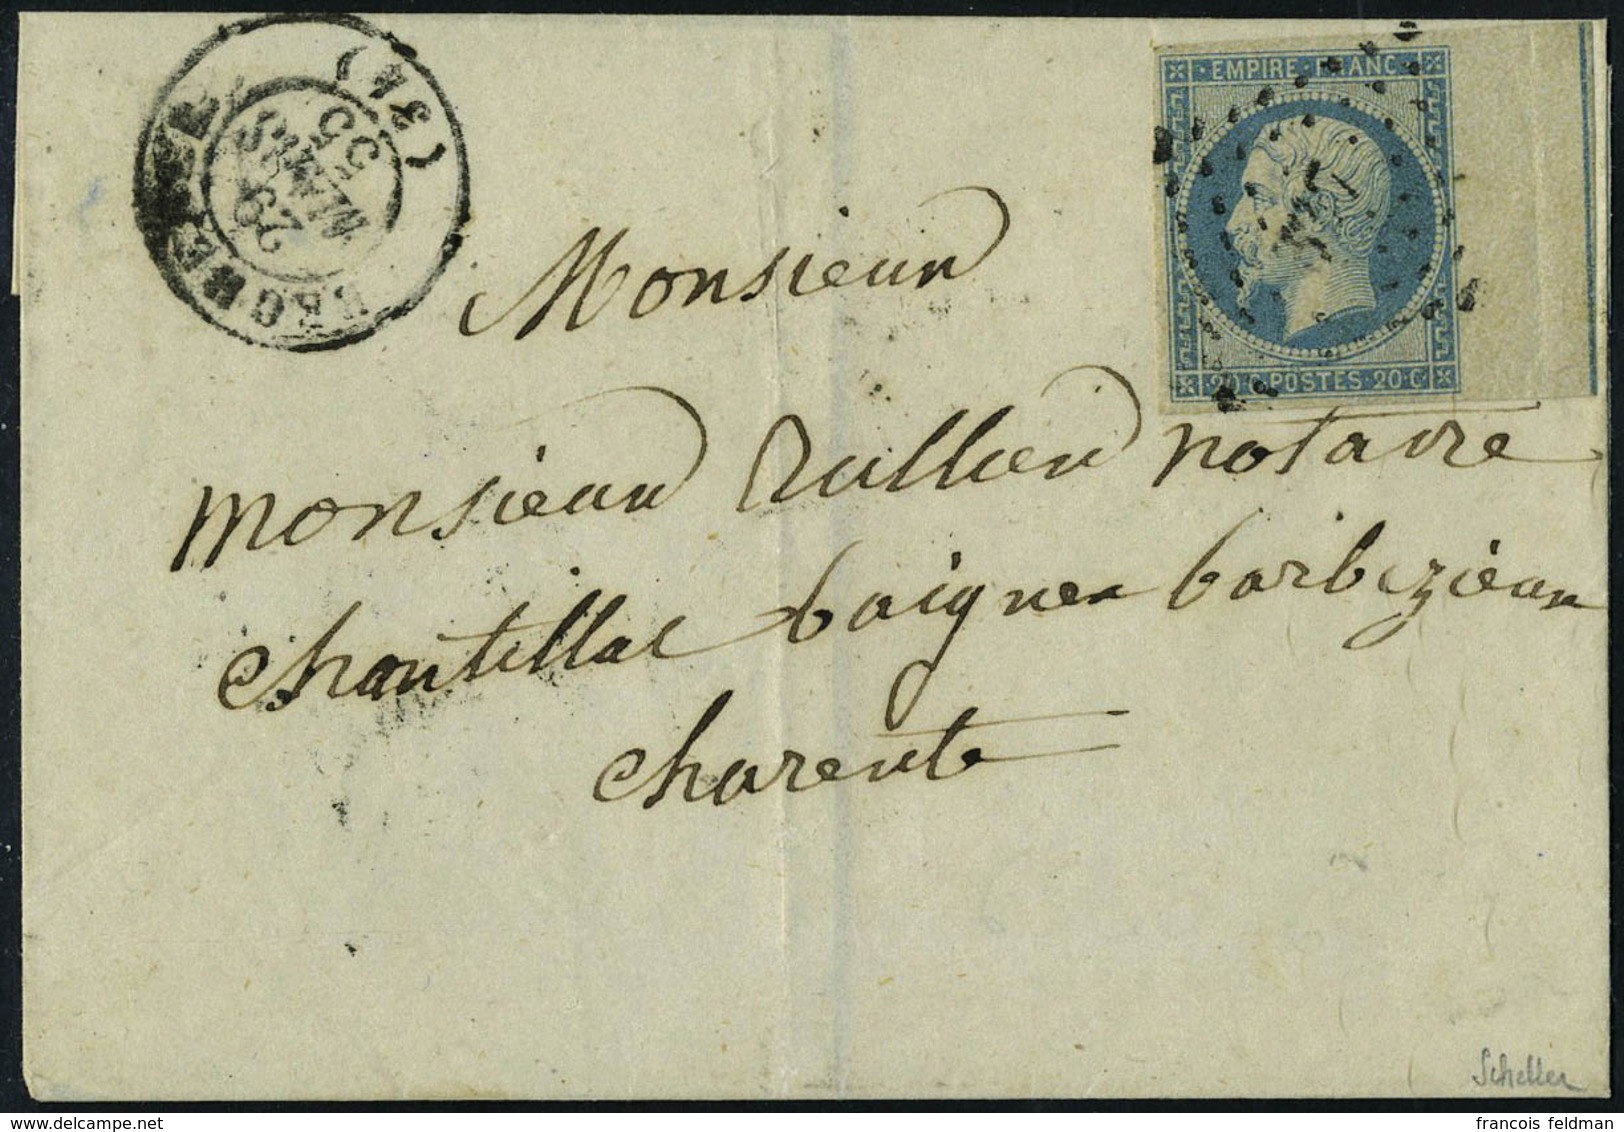 (34)
29
MARS
55
EMPIRE FRANC
20·C·POSTES·20·C
Monsieur
Monsieur Rullier notaire
chantillac baignes barbezieux
charente
Scheller
francois feldman